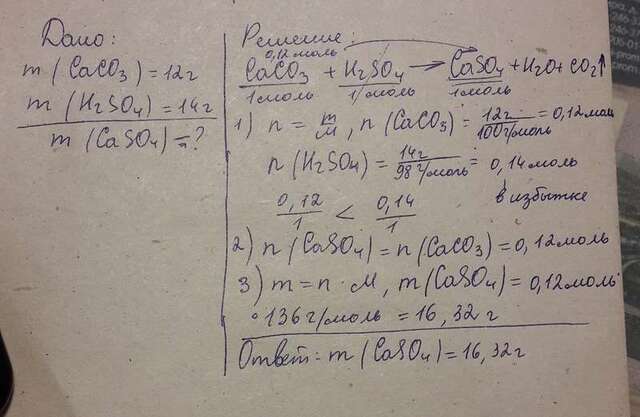 Дано:
m (CaCO3) = 12г
m (H2SO4) = 14г
m (CaSO4) = ?
Решение:
0,12моль
CaCO3 + H2SO4 → CaSO4 + H2O + CO2↑
1моль 1моль 1моль
1) n = m/M, n (CaCO3) = 12г/100г/моль = 0,12моль
n (H2SO4) = 14г/98г/моль = 0,14моль
0,12/1 < 0,14/1 в избытке
2) n (CaSO4) = n (CaCO3) = 0,12моль
3) m = n · M, m (CaSO4) = 0,12моль·
·136г/моль = 16,32г
Ответ: m (CaSO4) = 16,32г